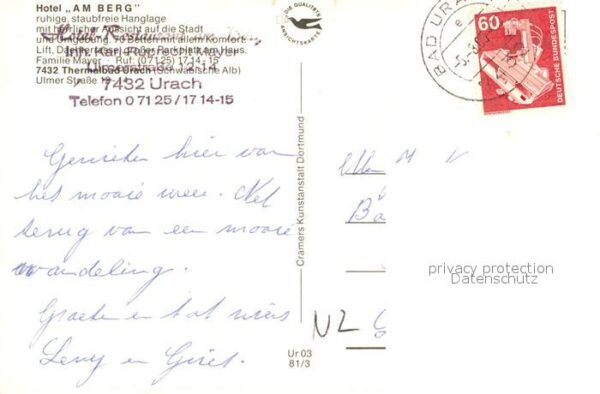 Hotel „AM BERG"
ruhige, staubfreie Hanglage
mit herrlicher Aussicht auf die Stadt
und Umgebung. 70 Betten mit allem Komfort
Lift, Dachterrasse, großer Parkplatz am Haus.
Familie Mayer · Ruf: (07125) 17 14 - 15
7432 Thermalbad Urach (Schwäbische Alb)
Ulmer Straße 12-14
Inh. Karl-Ruprecht Mayer
Ulmerstraße 12-14
7432 Urach
Telefon 0 71 25 / 17 14-15
Genieten hier van
het mooie weer. Net
terug van een mooie
wandeling.
Groeten en tot ziens
Leny en Griet.
DIE QUALITÄTS
ANSICHTSKARTE
Cramers Kunstanstalt Dortmund
Ur 03
81/3
BAD URACH
60
DEUTSCHE BUNDESPOST
M V
Ba
NL
privacy protection
Datenschutz